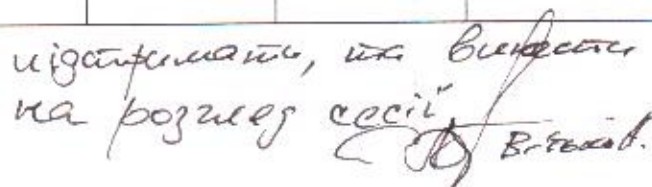 підтримати, та винести
на розгляд сесії